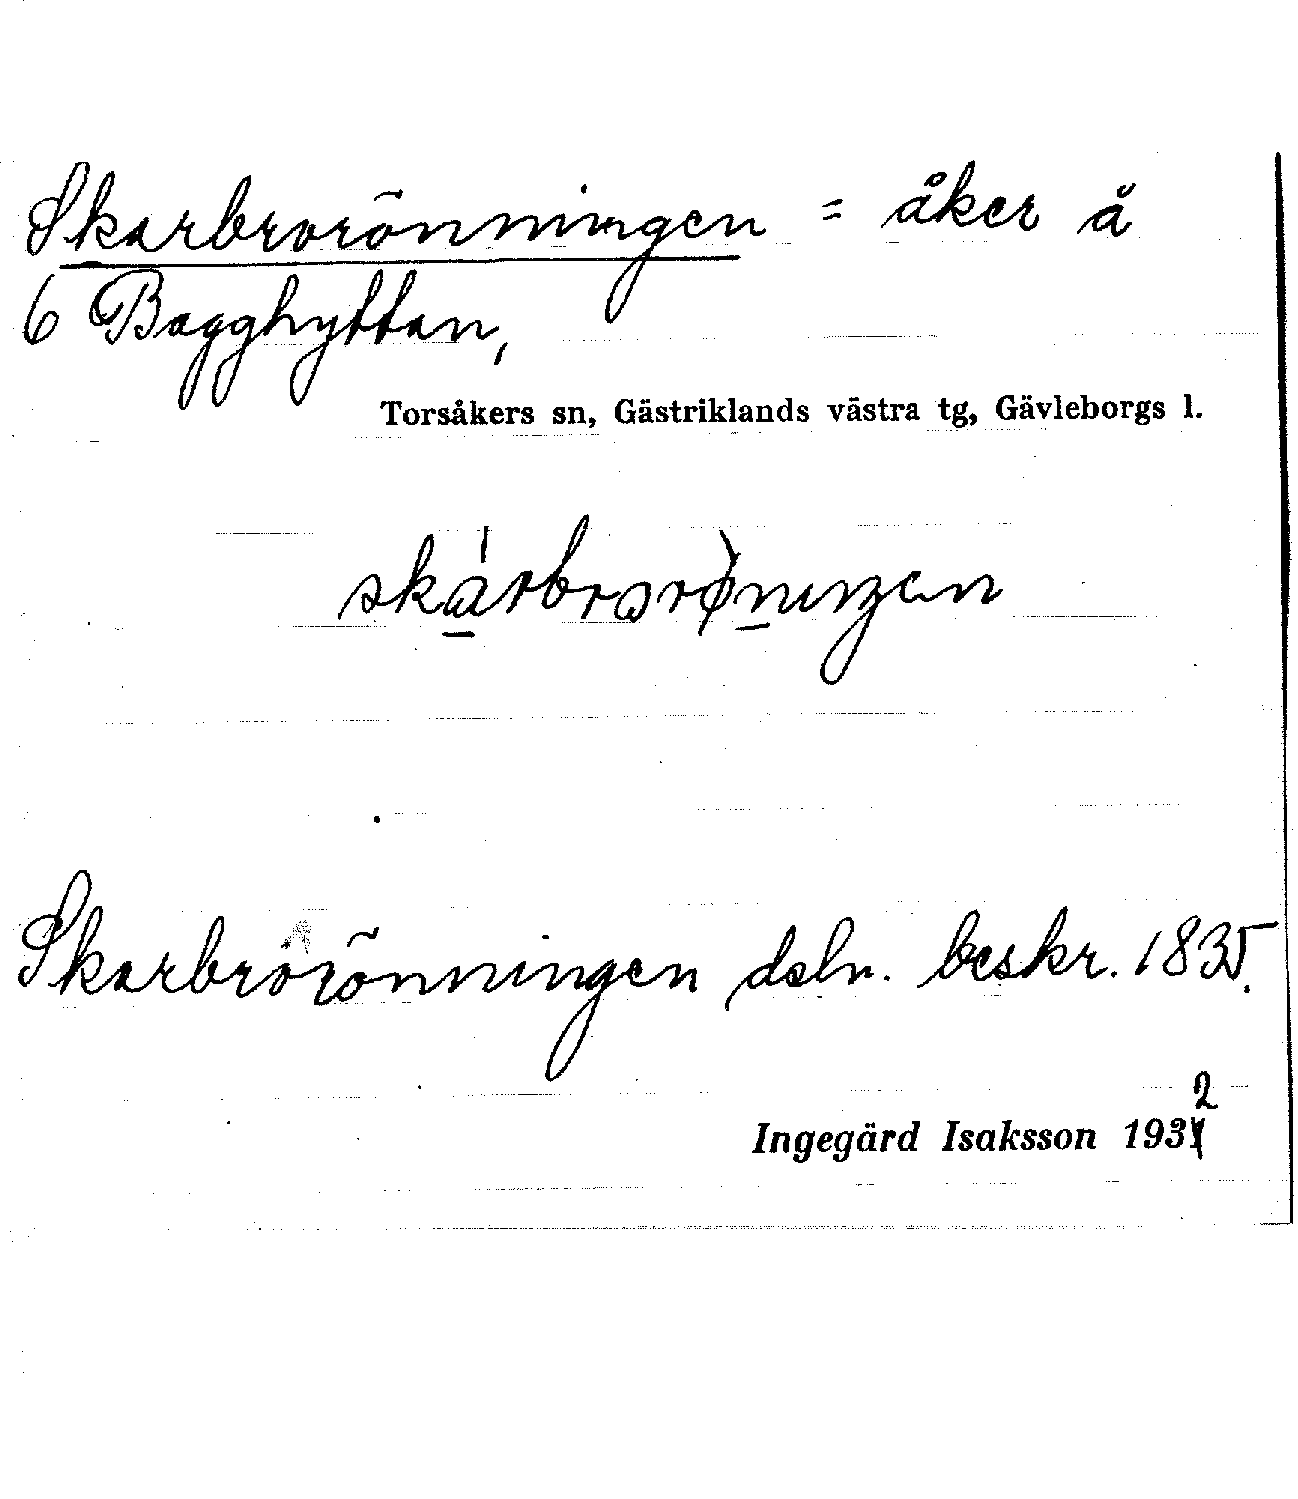 Skarbrorönningen = åker å
6 Bagghyttan,
Torsåkers sn, Gästriklands västra tg, Gävleborgs l.
Skarbrorönningen dsln. beskr. 1835.
2
Ingegärd Isaksson 1931